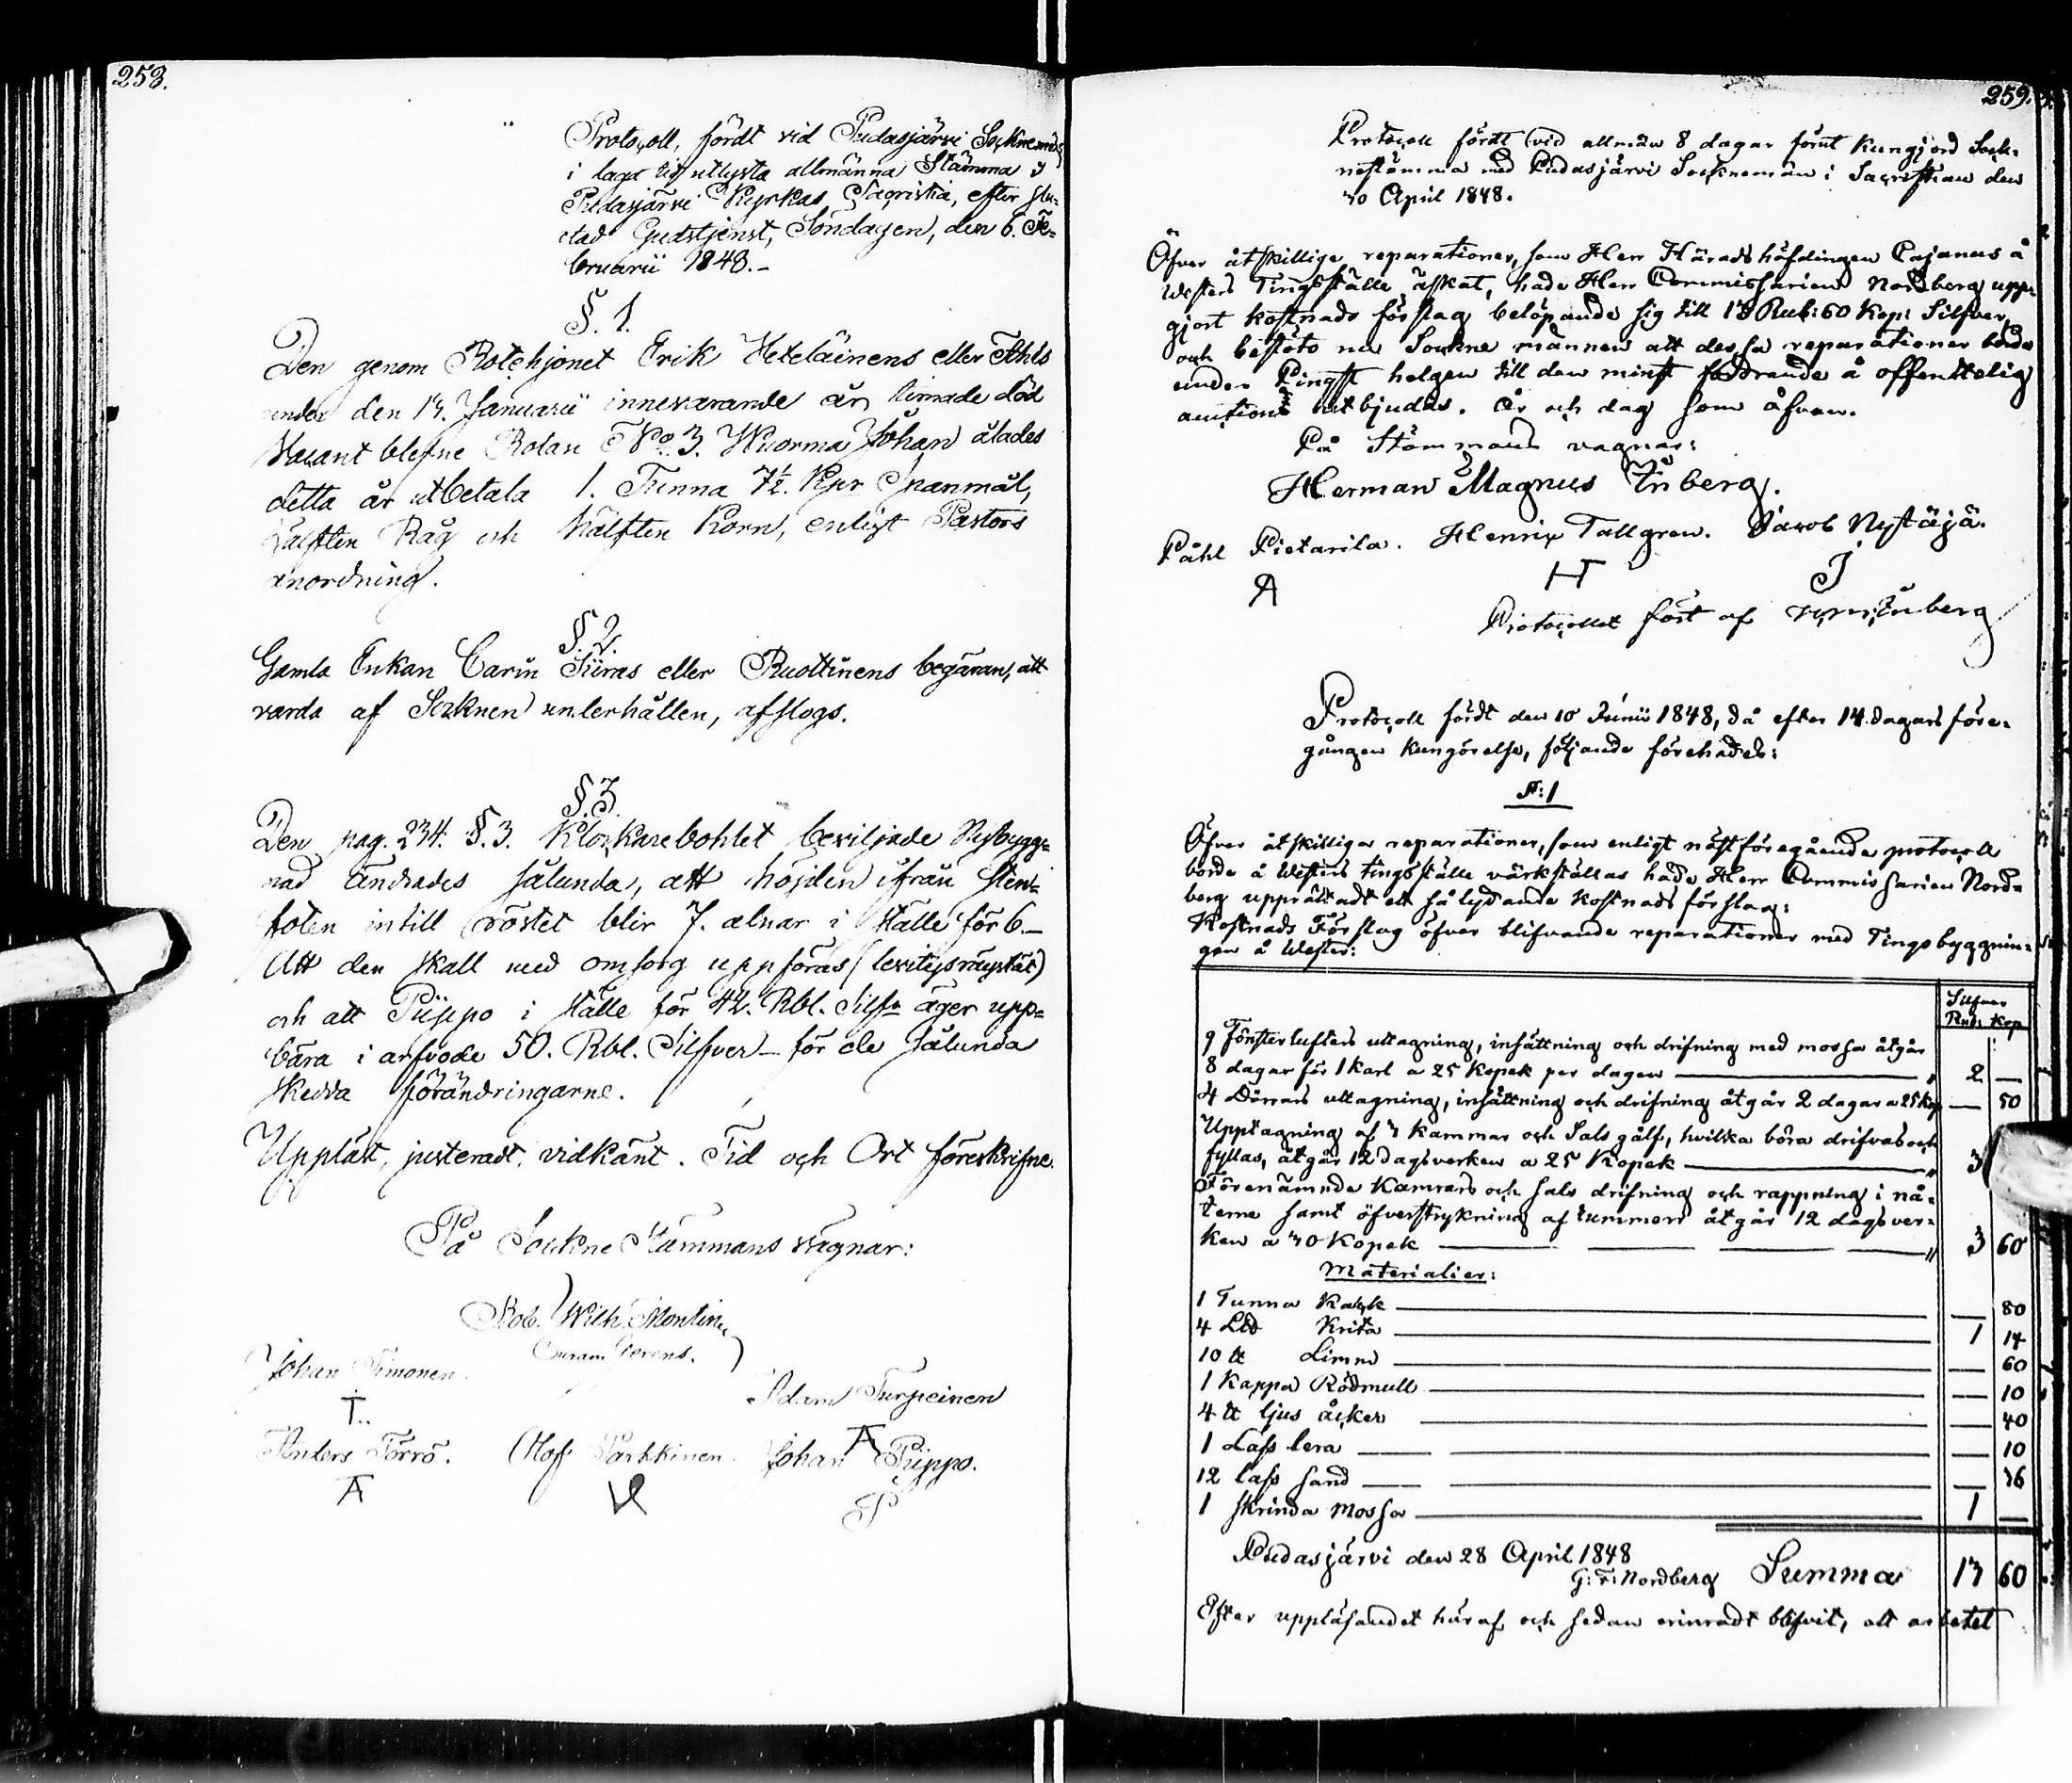 258.
Protocoll, fördt vid Pudasjärvi Sockne
i laga tid utlysta allmänna Stämma i
Pudasjärvi Kyrkas Sacristia, efter slu-
tad Gudstjenst, Söndagen, den 6. Fe-
bruarii 1848.-
§. 1.
Den genom Rotehjonet Erik Heteläinens eller
under den 13. Januarii innevarande år, timade död
Vacant blefne Rotan No. 3. Wuorma Johan ålades
detta år utbetala 1. Tunna 7½. Kpr Spanmål,
hälften Råg och hälften Korn, enligt Pastors
anordning.
§. 2.
Gamla Enkan Carin Siiras eller Ruottinens begäran, att
varda af Socknen underhållen, afslogs.
§. 3.
Den pag. 234. §. 3. Klockarebohlet beviljade Nybygg=
nad ändrades sålunda, att höjden ifrån sten-
foten intill röstet blir 7. alnar i ställe för 6.-
Att den skall med omsorg uppföras (
och att Piippo i ställe för 42. Rbl. Silfr äger upp=
bära i arfvode 50. Rbl. Silfver - för de sålunda
skedda förändringarne.
Uppläst, justeradt, vidkänt. Tid och Ort föreskrifne.
På Sockne Stämmans vägnar:
Rob. Wilh. Montin,
Curam Gerens.
Johan Timonen.
T..
Adam Turpeinen
A
Anders Törrö. Olof Parkkinen. Johan Piippo.
A P
259.
Protocoll fördt vid allmän 8 dagar förut kungjord Sock-
nestämma med Pudasjärvi Socknemän i Sacristian den
30 April 1848.
Öfver åtskillige reparationer, som Herr Häradshöfdingen Cajanus å
Westers Tingsställe äskat, hade Herr Commissarien Nordberg upp-
gjort kostnads förslag belöpande sig till 13 Rub: 60 Kop: Silfver,
och beslöto nu Sockne männen att dessa reparationer borde
under Pingst helgen till den minst fordrande å offenttelig
auction utbjudas. År och dag som åfvan.
På Stämmans vägnar:
Herman Magnus Enberg.
Påhl Pietarila. Henric Tallgren. Jacob Nystäjä.
A H J
Protocollet fört af H,M,Enberg
Protocoll fördt den 10 Junii 1848, då efter 14 dagars före-
gången kungörelse, följande förehades:
§: 1
Öfver åtskilliga reparationer, som enligt nästföregående protocoll
borde å Westers tingsställe värkställas hade Herr Commissarien Nord-
berg upprättadt ett så lydande kostnads förslag:
Kostnads Förslag öfver blifvande reparationer med Tingsbyggnin-
gen å Wester:
Silfver
Rub: Kop
9 Fönsterlufters uttagning, insättning och drifning med mossa åtgår
8 dagar för 1 karl a 25 Kopek per dagen 2 —
4 Dörrars uttagning, insättning och drifning åtgår 2 dagar a 25 Kop — 50
Upptagning af 3 Kammar och Sals gålf, hvilka böra drifvas och
fyllas, åtgår 12 dagsverken a 25 Kopek 3
Förenämnde Kamrars och sals drifning och rappning i nå-
terne samt öfverstrykning af rummen åtgår 12 dagsver-
ken a 30 Kopek 3 60
Materialier:
1 Tunna Kalck — 80
4 L℔ Krita 1 14
10 ℔ Limm — 60
1 Kappa Rödmull — 10
4 ℔ ljus åcker — 40
1 Lass lera — 10
12 lass sand — 36
1 skrinda mossa 1 —
Pudasjärvi den 28 April 1848
G: F: Nordberg Summa 13 60
Efter uppläsandet häraf och sedan erinradt blifvit, att arbetet